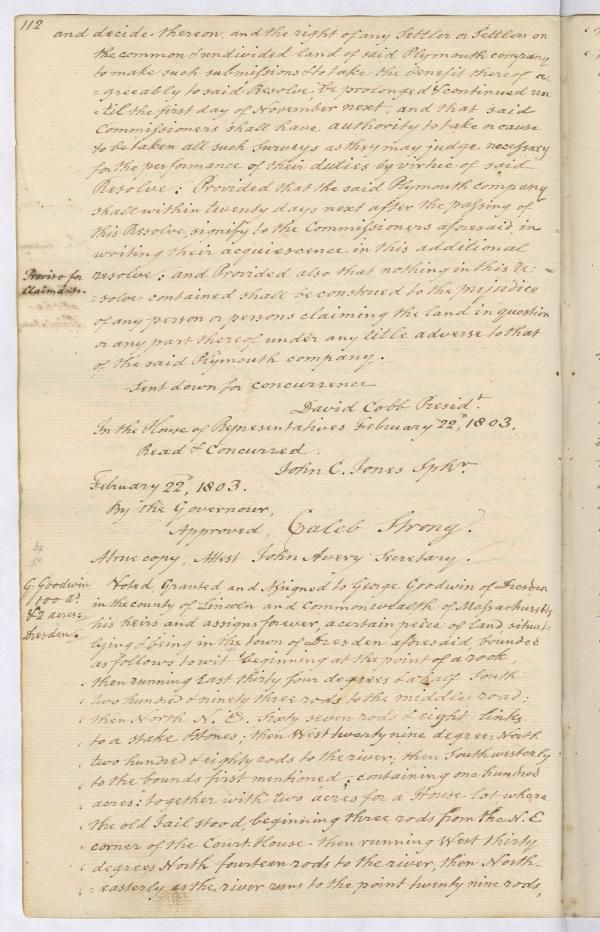 112
and decide thereon, and the right of any Settler or Settlers on
the common & undivided land of said Plymouth company
to make such submissions & to take the benefit thereof a-
=greeably to said Resolve be prolonged & continued un-
-til the first day of November next, and that said
Commissioners shall have authority to take or cause
to be taken all such Surveys as they may judge necessary
for the performance of their duties by virtue of said
Resolve: Provided that the said Plymouth company
shall within twenty days next after the passing of
this Resolve, signify to the Commissioners aforesaid, in
writing their acquiescence in this additional
Proviso for
Claimants.
resolve; and Provided also that nothing in this re-
=solve contained shall be construed to the prejudice
of any person or persons claiming the land in question
or any part thereof under any title adverse to that
of the said Plymouth company.
Sent down for concurrence
David Cobb Presidt.
In the House of Representatives February 22d, 1803.
Read & Concurred.
John C. Jones Spkr.
February 22d, 1803.
By the Governour,
Approved, Caleb Strong.
A true copy, Attest John Avery Secretary.
G. Goodwin
100 as.
& 2 acres
Dresden.
Voted, Granted and Assigned to George Goodwin of Dresden
in the county of Lincoln and Commonwealth of Massachusetts
his heirs and assigns forever, a certain peice of land situat-
lying & being in the town of Dresden aforesaid, bounded
as follows to wit beginning at the point of a rock,
then running East thirty four degrees & a half South
two hundred & ninety three rods to the middle road;
then North N. E. Sixty seven rods & eight links
to a stake & stones; then West twenty nine degrees North
two hundred & eighty rods to the river; then Southwesterly
to the bounds first mentioned, containing one hundred
acres: together with two acres for a House lot where
the old Jail stood, beginning three rods from the N. E
corner of the Court House then running West thirty
degrees North fourteen rods to the river, then North-
=easterly as the river runs to the point twenty nine rods,